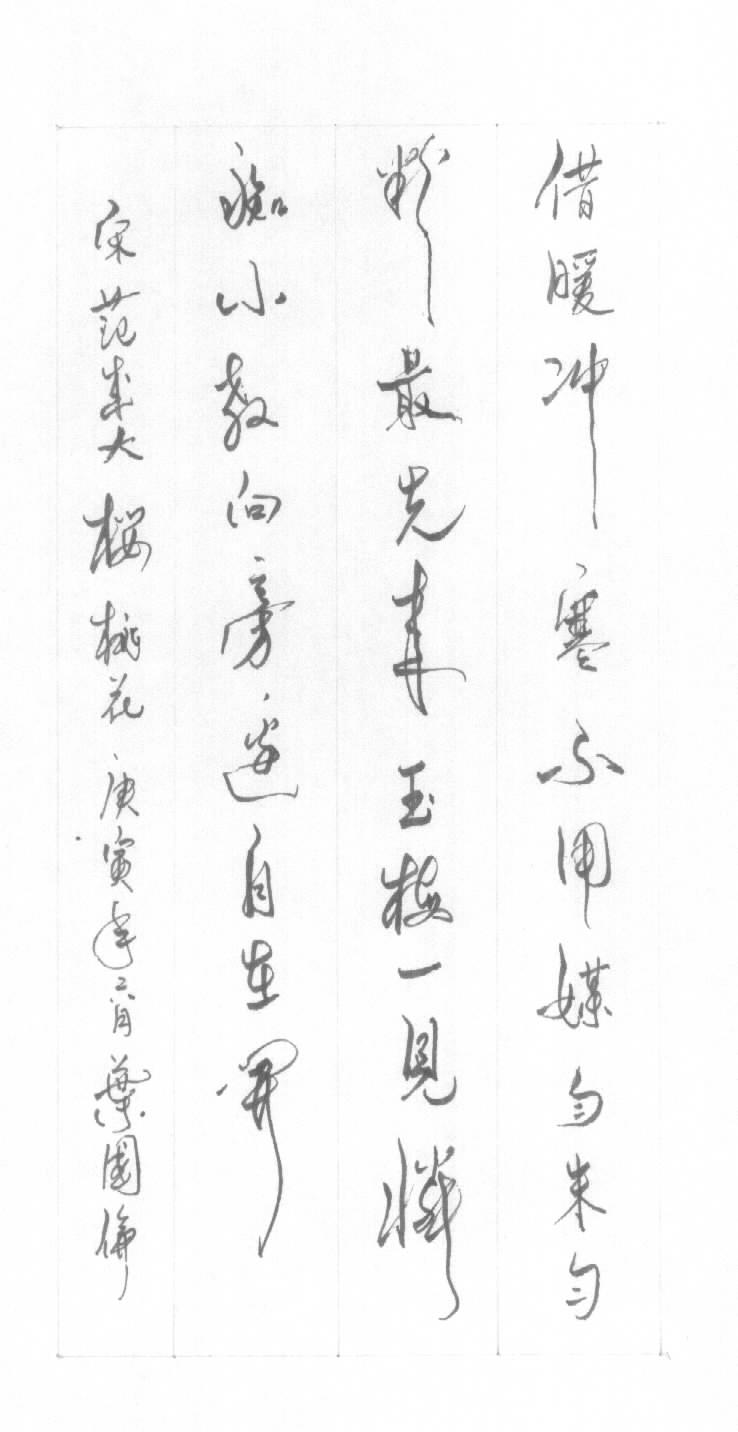 借暖冲寒不用媒匀朱匀
粉最先来玉梅一見憐
痴小教向旁邊自在開
宋范成大樱桃花庚寅年六月葉國